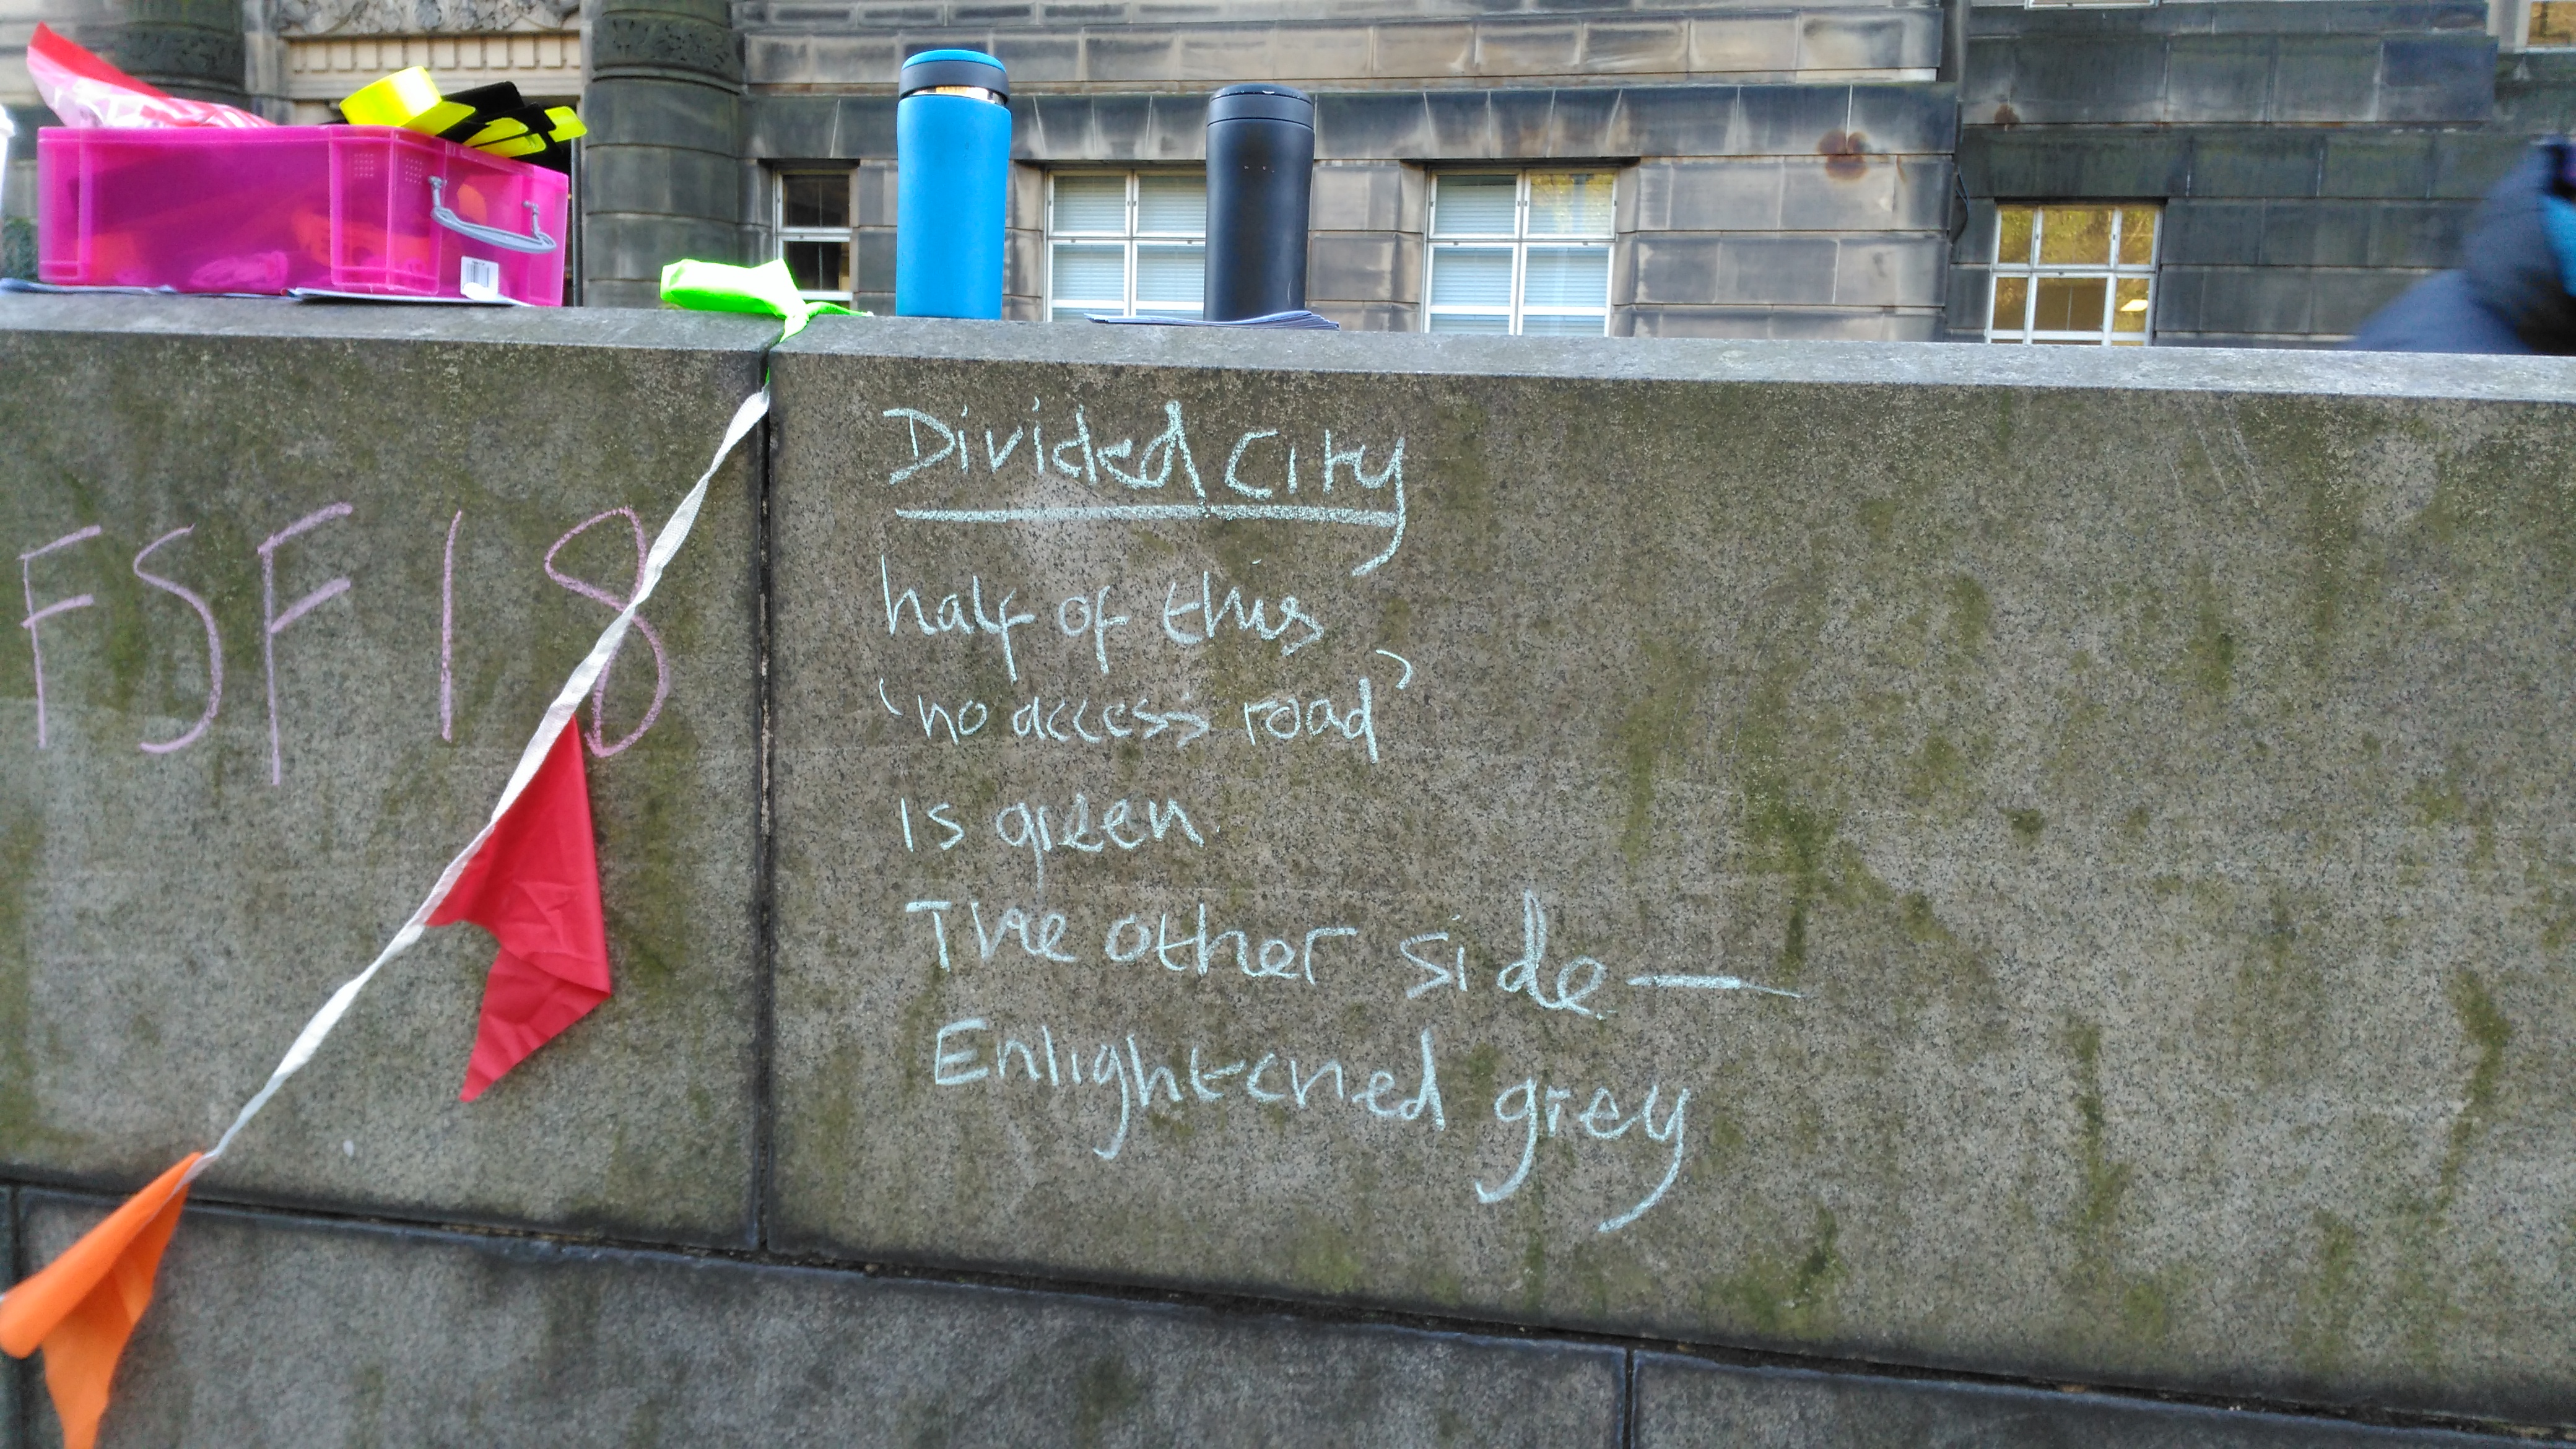 FSF 18
Divided City
half of this
'no access road'
is green
The other side —
Enlightened grey